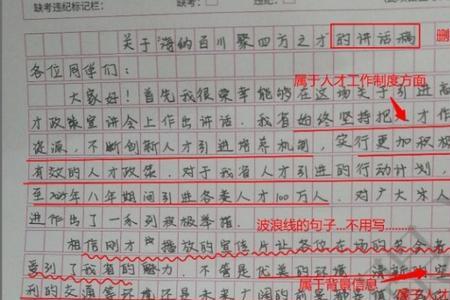 缺考违纪标记栏: 缺考:
关于"海纳百川 聚四方之才"的讲话稿 删
各位同学们:
属于人才工作制度方面
大家好!首先我很荣幸能够在这场关于引进高
才政策宣讲会上作出讲话。我省始终坚持把人才作
资源,不断创新人才引进培养机制,实行更加积极
有效的人才政策。对于我省人才引进的行动计划,
至2025年八年期间引进各类人才100万人,对广大人
进作出了一系列积极举措。
波浪线的句子...不用写......
相信刚才播放的宣传片让各位在场的
受到了我省的魅力,不管是优美的环境、清新
属于背景信息
利的交通